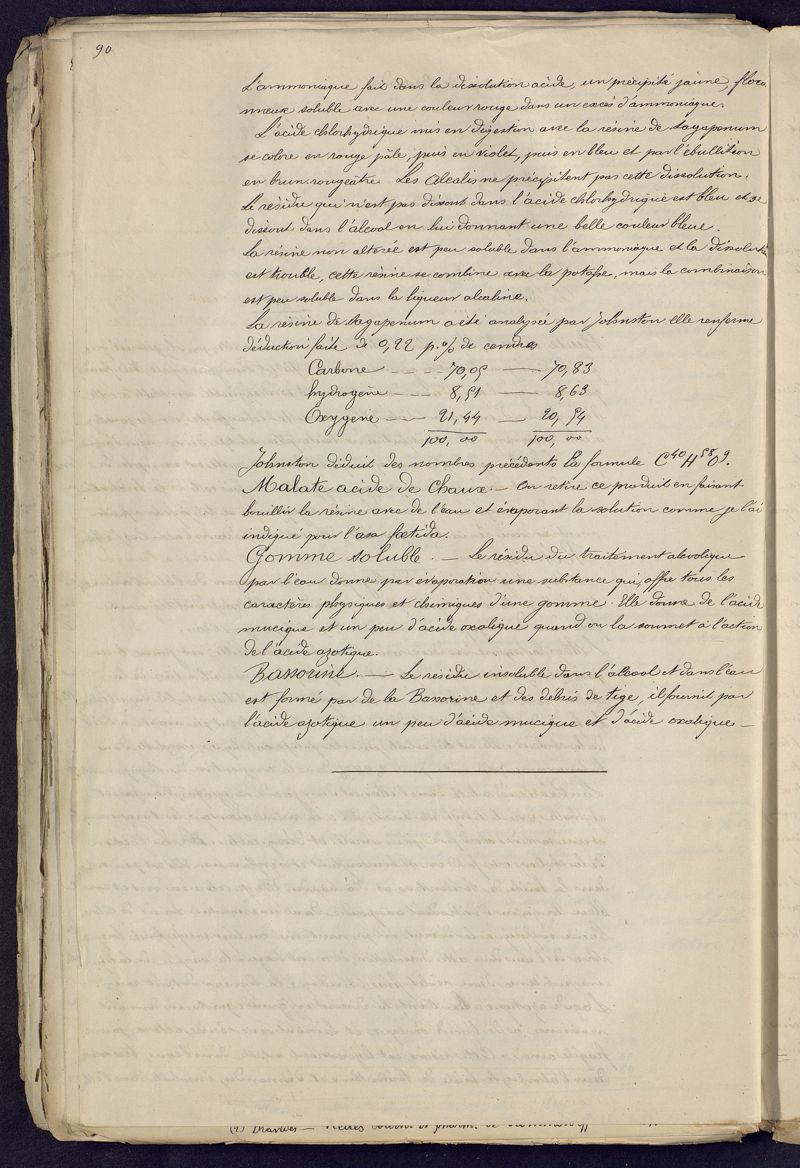 90
L'ammoniaque fait dans la dissolution acide, un précipité jaune, flocon
nneux soluble avec une couleur rouge dans un excès d'ammoniaque.
L'acide chlorhydrique mis en digestion avec la résine de Sagapenum
se colore en rouge pâle, puis en violet, puis en bleu et par l'ébullition
en brun rougeâtre. Les Alcalis ne précipitent pas cette dissolution.
Le résidu qui n'est pas dissout dans l'acide chlorhydrique est bleu et se
dissout dans l'alcool en lui donnant une belle couleur bleue.
La résine non altérée est peu soluble dans l'ammoniaque et la dissolution
est trouble, cette résine se combine avec la potasse, mais la combinaison
est peu soluble dans la liqueur alcaline.
La résine de Sagapenum a été analysée par Johnston elle renferme
déduction faite de 0,22 p.% de cendres
Carbone — — — 70,05 — 70,83
hydrogène — — 8,51 — 8,63
Oxygène — — 21,44 — 20,54
100,00 100,00
Johnston déduit des nombres précédents la formule C⁴⁰H⁵⁸O⁹.
Malate acide de Chaux. — On retire ce produit en faisant
bouillir la résine avec de l'eau et évaporant la solution comme je l'ai
indiqué pour l'asa fœtida.
Gomme soluble. — Le résidu du traitement alcoolique
par l'eau donne par évaporation une substance qui offre tous les
caractères physiques et chimiques d'une gomme. Elle donne de l'acide
mucique et un peu d'acide oxalique quand on la soumet à l'action
de l'acide azotique.
Bassorine. — Le résidu insoluble dans l'alcool et dans l'eau
est formé par de la Bassorine et des débris de tige, il fournit par
l'acide azotique un peu d'acide mucique et d'acide oxalique —